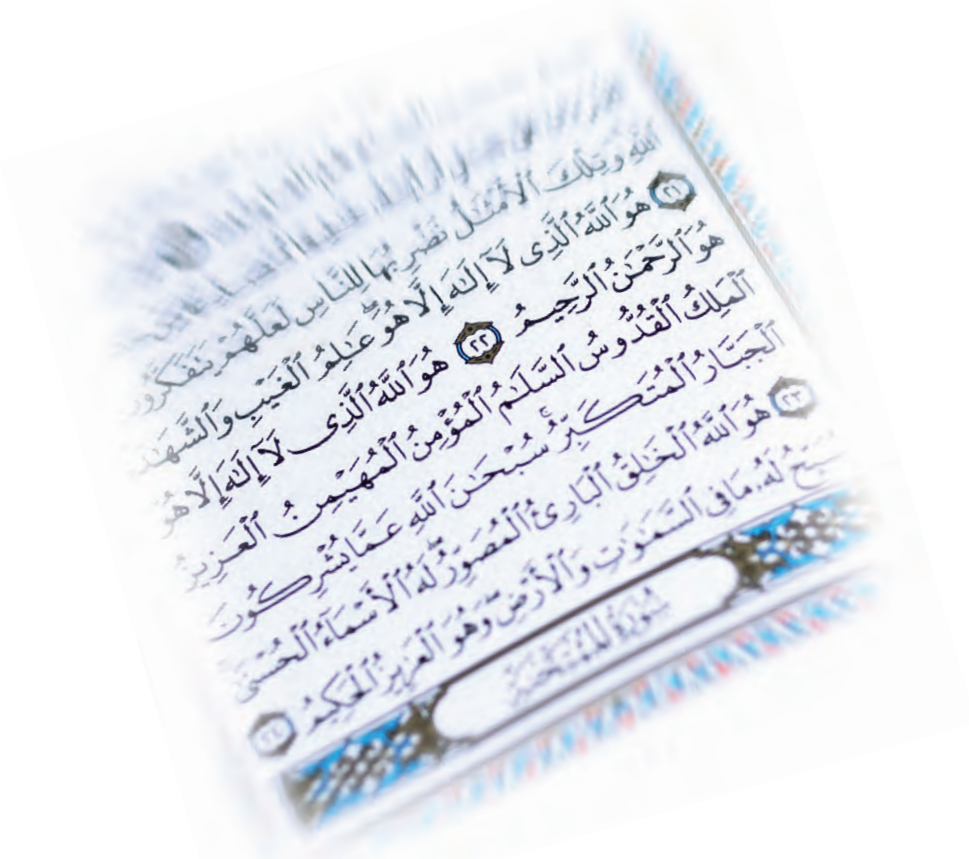 ٱللَّهِ وَتِلْكَ ٱلْأَمْثَٰلُ نَضْرِبُهَا لِلنَّاسِ لَعَلَّهُمْ يَتَفَكَّرُونَ
٢١ هُوَ ٱللَّهُ ٱلَّذِى لَآ إِلَٰهَ إِلَّا هُوَ ۖ عَٰلِمُ ٱلْغَيْبِ وَٱلشَّهَٰدَ
هُوَ ٱلرَّحْمَٰنُ ٱلرَّحِيمُ ٢٢ هُوَ ٱللَّهُ ٱلَّذِى لَآ إِلَٰهَ إِلَّا هُوَ
ٱلْمَلِكُ ٱلْقُدُّوسُ ٱلسَّلَٰمُ ٱلْمُؤْمِنُ ٱلْمُهَيْمِنُ ٱلْعَزِيزُ
ٱلْجَبَّارُ ٱلْمُتَكَبِّرُ ۚ سُبْحَٰنَ ٱللَّهِ عَمَّا يُشْرِكُونَ
٢٣ هُوَ ٱللَّهُ ٱلْخَٰلِقُ ٱلْبَارِئُ ٱلْمُصَوِّرُ ۖ لَهُ ٱلْأَسْمَآءُ ٱلْحُسْنَىٰ
يُسَبِّحُ لَهُۥ مَا فِى ٱلسَّمَٰوَٰتِ وَٱلْأَرْضِ ۖ وَهُوَ ٱلْعَزِيزُ ٱلْحَكِيمُ ٢٤
سُورَةُ المُمْتَحِنَةِ